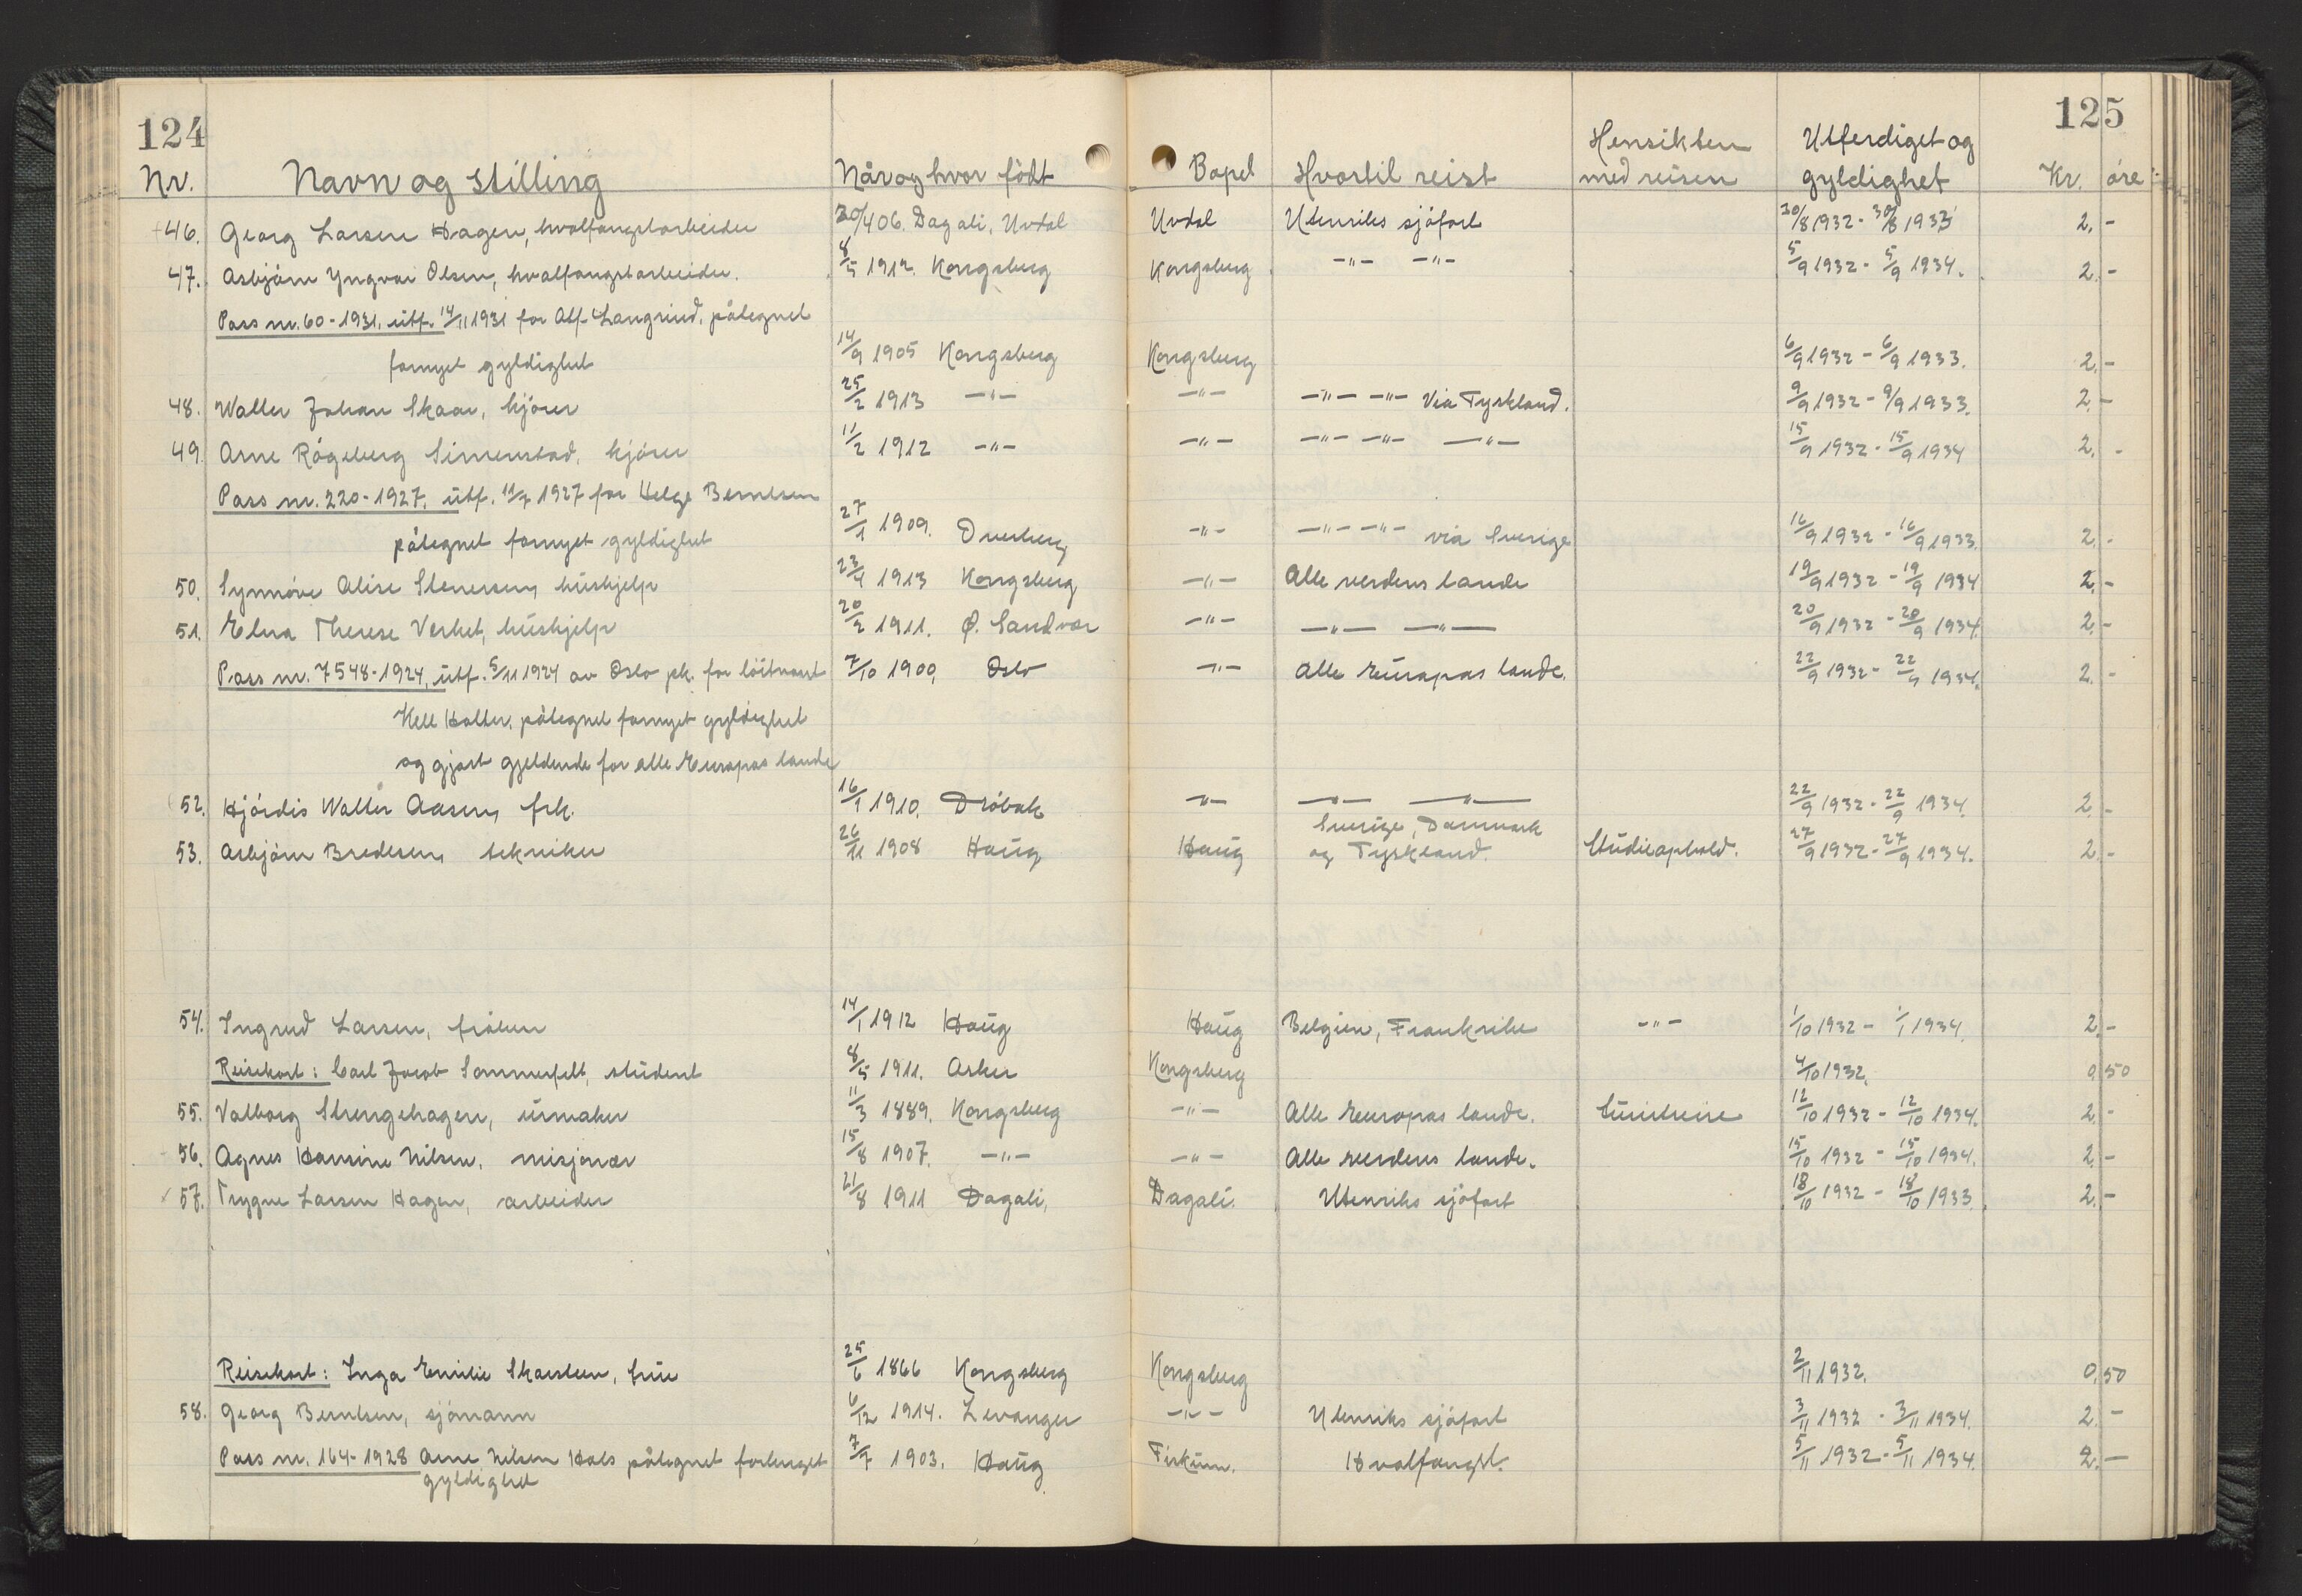 124
125
Nr. Navn og stilling Når og hvor født Bopel Hvortil reist Hensikten med reisen Utferdiget og gyldighet Kr. øre
46. Georg Larsen Hagen, hvalfangstarbeider 20/4 06. Dagali, Uvdal Uvdal Utenriks sjøfart 30/8 1932 - 30/8 1933 2. -
47. Asbjørn Yngvar Olsen, hvalfangstarbeider. 8/5 1912. Kongsberg Kongsberg -"- -"- 5/9 1932 - 5/9 1934. 2. -
Pass nr. 60-1931, utf. 14/11 1931 for Alf Langrud, påtegnet
fornyet gyldighet 14/9 1905 Kongsberg Kongsberg 6/9 1932 - 6/9 1933. 2. -
48. Walter Johan Skaar, kjører 25/2 1913 -"- -"- -"- -"- via Tyskland. 9/9 1932 - 9/9 1933. 2. -
49. Arne Rågeberg Simenstad, kjører 11/2 1912 -"- -"- -"- -"- -"- 15/9 1932 - 15/9 1934 2. -
Pass nr. 220-1927, utf. 11/7 1927 for Helge Berntsen
påtegnet fornyet gyldighet 27/1 1909. Dverberg -"- -"- -"- via Sverige 16/9 1932 - 16/9 1933. 2. -
50. Synnøve Alise Stenersen, hushjelp 23/4 1913 Kongsberg -"- Alle verdens lande 19/9 1932 - 19/9 1934 2. -
51. Elna Therese Verket, hushjelp 20/2 1911. Ø. Sandvær -"- -"- -"- 20/9 1932 - 20/9 1934. 2. -
Pass nr. 7548-1924, utf. 5/11 1924 av Oslo pk. for løitnant 7/10 1900, Oslo -"- Alle Europas lande. 22/9 1932 - 22/9 1934. 2. -
Kell Holter, påtegnet fornyet gyldighet
og gjort gjeldende for alle Europas lande
52. Hjørdis Walter Aasen, frk. 16/1 1910. Drøbak -"- -"- -"- 22/9 1932 - 22/9 1934. 2. -
53. Asbjørn Bredesen, tekniker 26/11 1908 Haug Haug Sverige, Danmark og Tyskland. Studieophold. 27/9 1932 - 27/9 1934. 2. -
54. Ingrid Larsen, frøken 14/1 1912 Haug Haug Belgien, Frankrike -"- 1/10 1932 - 1/1 1934. 2. -
Reisekort: Carl Jacob Sommerfelt, student 8/5 1911. Asker Kongsberg 4/10 1932. 0,50
55. Valborg Strengehagen, urmaker 11/3 1889. Kongsberg -"- Alle Europas lande. turistreise 12/10 1932 - 12/10 1934. 2. -
56. Agnes Hansine Nilsen, misjonær 15/8 1907. -"- -"- Alle verdens lande. 15/10 1932 - 15/10 1934. 2. -
57. Trygve Larsen Hagen, arbeider 21/8 1911 Dagali, Dagali. Utenriks sjøfart 18/10 1932 - 18/10 1933. 2. -
Reisekort: Inga Emilie Skarsteen, frue 25/6 1866 Kongsberg Kongsberg 2/11 1932. 0,50
58. Georg Berntsen, sjømann 6/12 1914. Levanger -"- Utenriks sjøfart 3/11 1932 - 3/11 1934. 2. -
Pass nr. 164-1928 Arne Nilsen Hals påtegnet forlenget 7/7 1903. Haug Fiskum. Hvalfangst. 5/11 1932 - 5/11 1934. 2. -
gyldighet